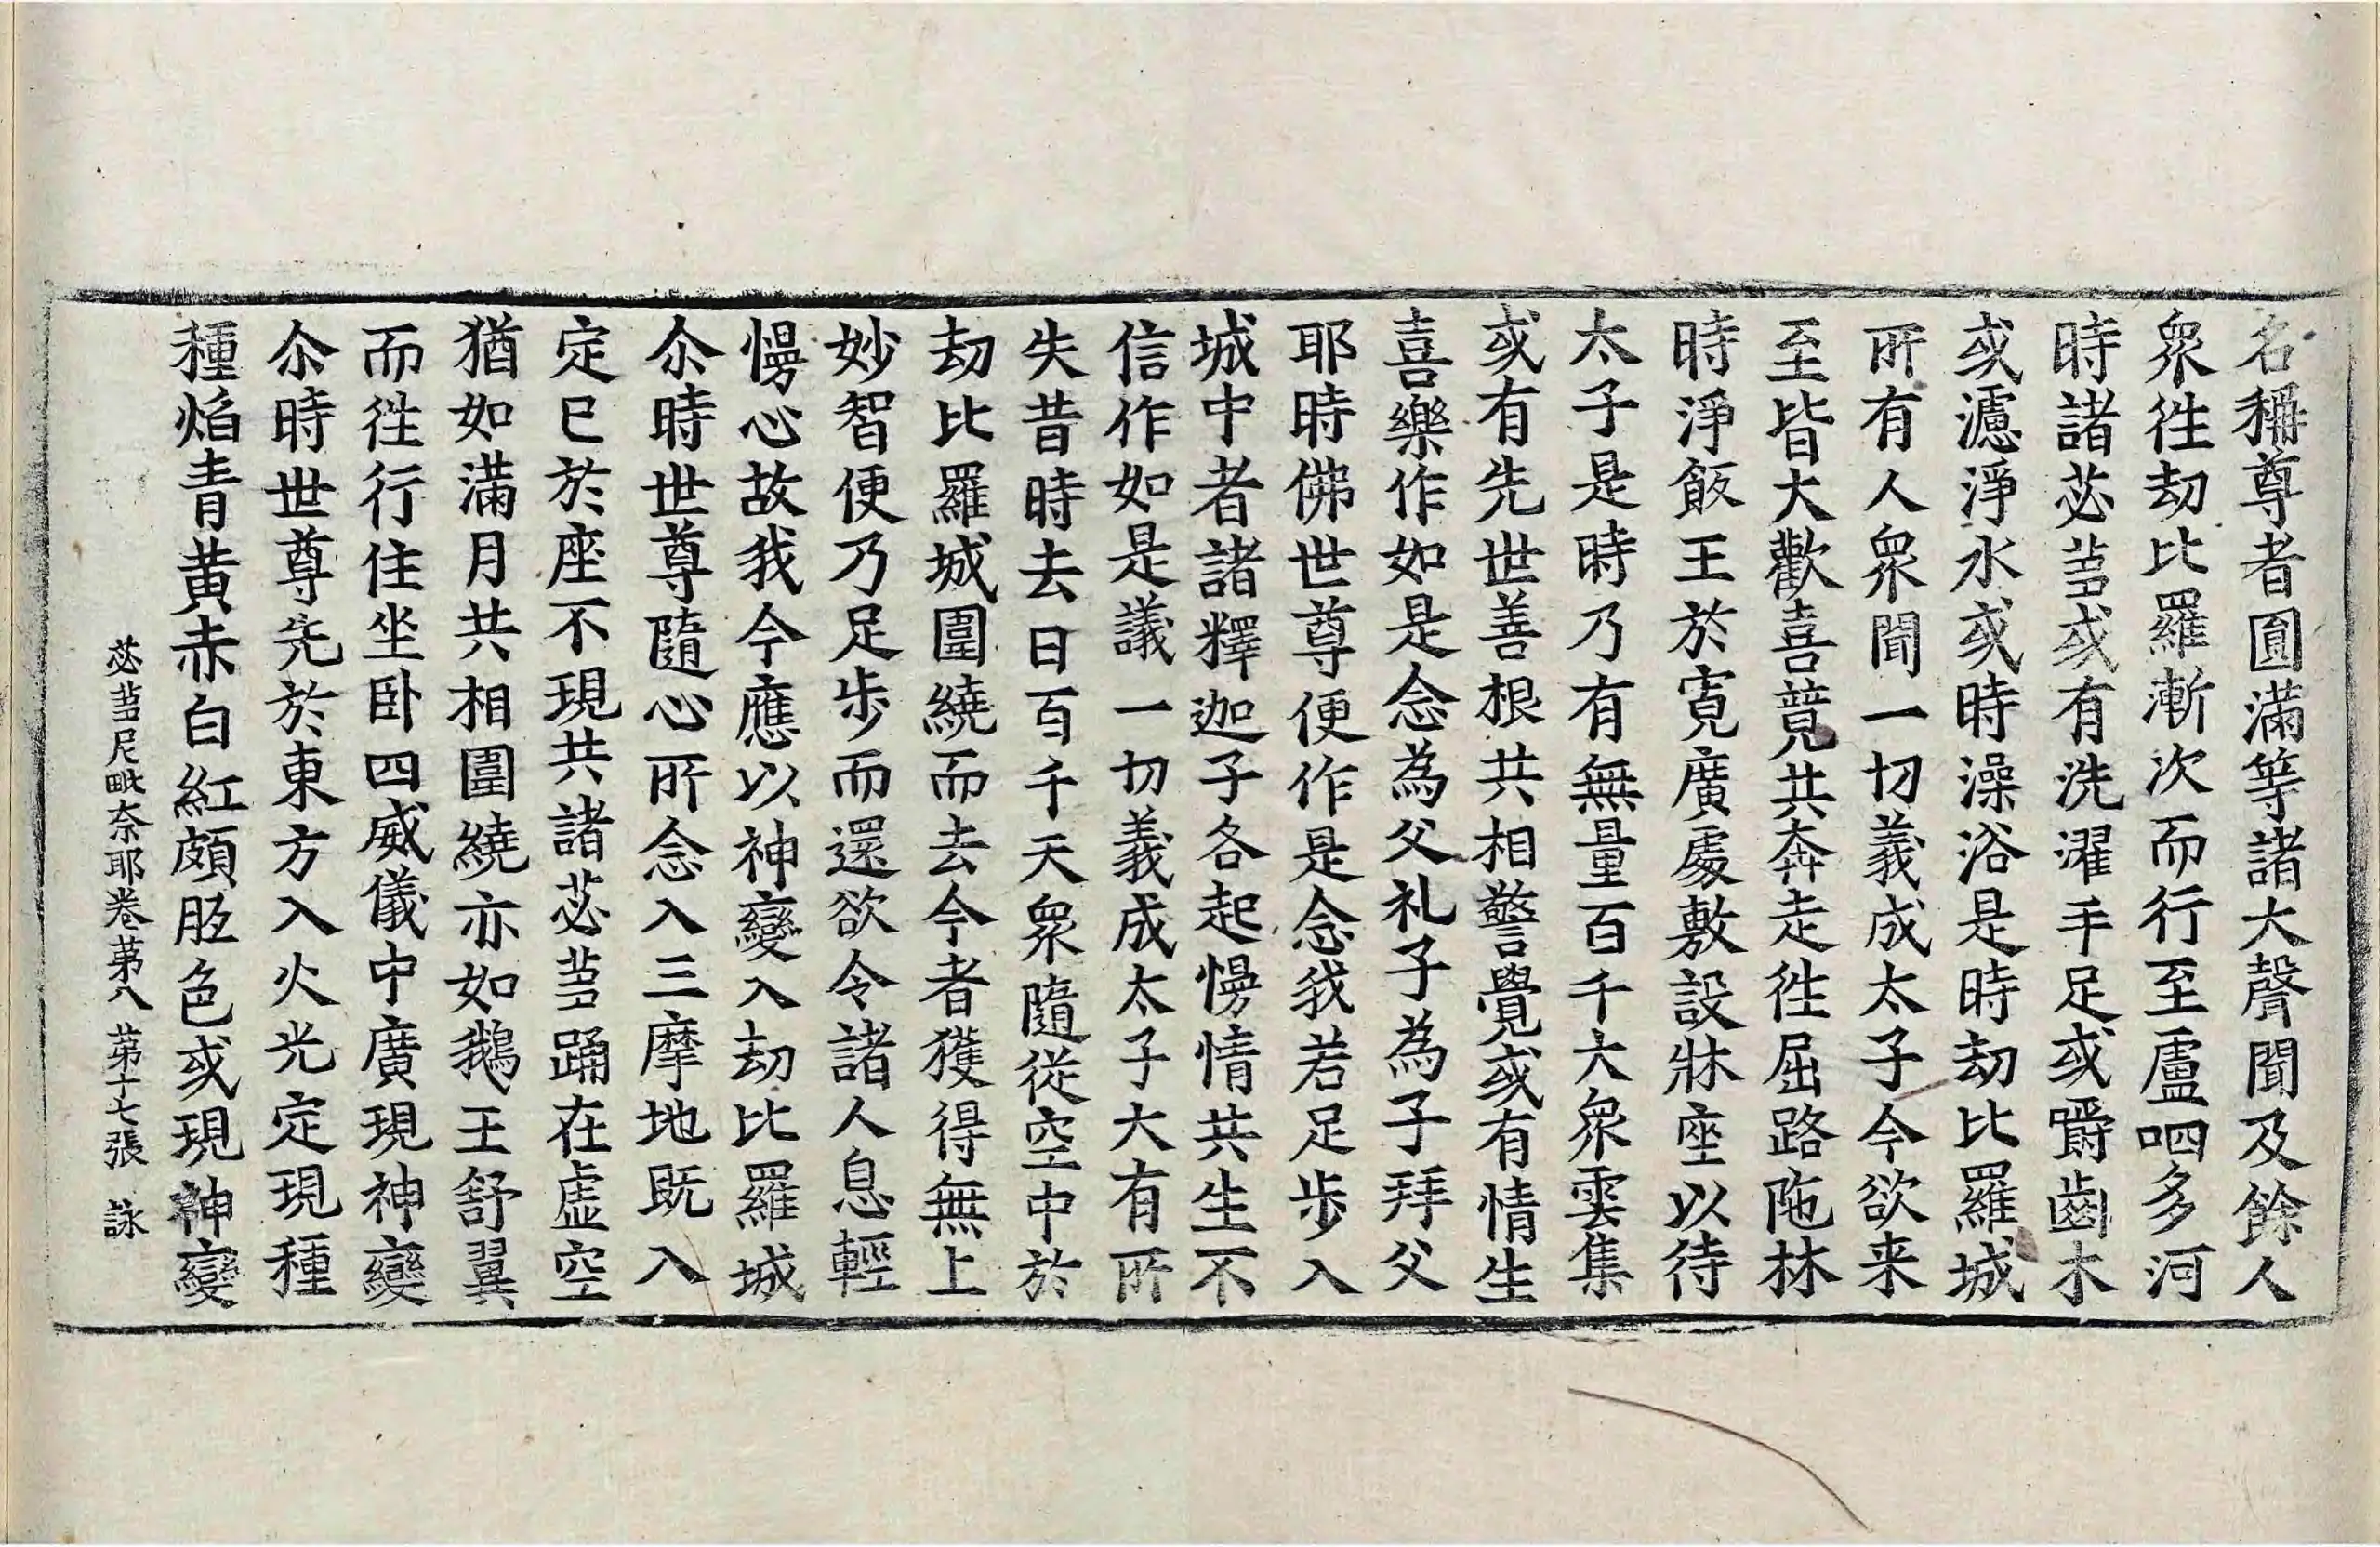 名稱尊者圎滿等諸大聲聞及餘人
衆徃劫比羅漸次而行至盧呬多河
時諸苾芻或有洗濯手足或嚼齒木
或濾淨水或時澡浴是時劫比羅城
所有人衆聞一切義成太子今欲来
至皆大歡喜競共奔走徃屈路陁林
時淨飯王於寬廣處敷設牀座以待
太子是時乃有無量百千大衆雲集
或有先世善根共相警覺或有情生
喜樂作如是念為父礼子為子拜父
耶時佛世尊便作是念我若足步入
城中者諸釋迦子各起慢情共生不
信作如是議一切義成太子大有所
失昔時去日百千天衆隨從空中於
劫比羅城圍繞而去今者獲得無上
妙智便乃足步而還欲令諸人息輕
慢心故我今應以神變入劫比羅城
尒時世尊隨心所念入三摩地既入
定已於座不現共諸苾芻踊在虛空
猶如滿月共相圍繞亦如鵝王舒翼
而徃行住坐卧四威儀中廣現神變
尒時世尊先於東方入火光定現種
種焰青黃赤白紅頗胝色或現神變
苾芻尼毗奈耶卷苐八 苐十七張 詠